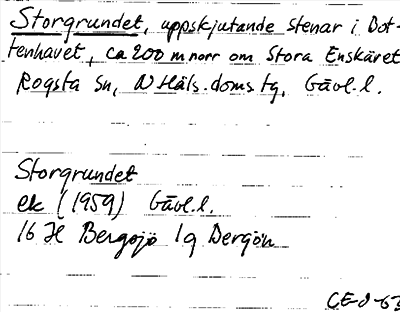 Storgrundet, uppskjutande stenar i Bot-
tenhavet, ca 200 m norr om Stora Enskäret
Rogsta sn, N Häls. doms tg, Gävl. l.
Storgrundet
ek (1959) Gävl. l.
16 H Bergöjö 1g Dergön